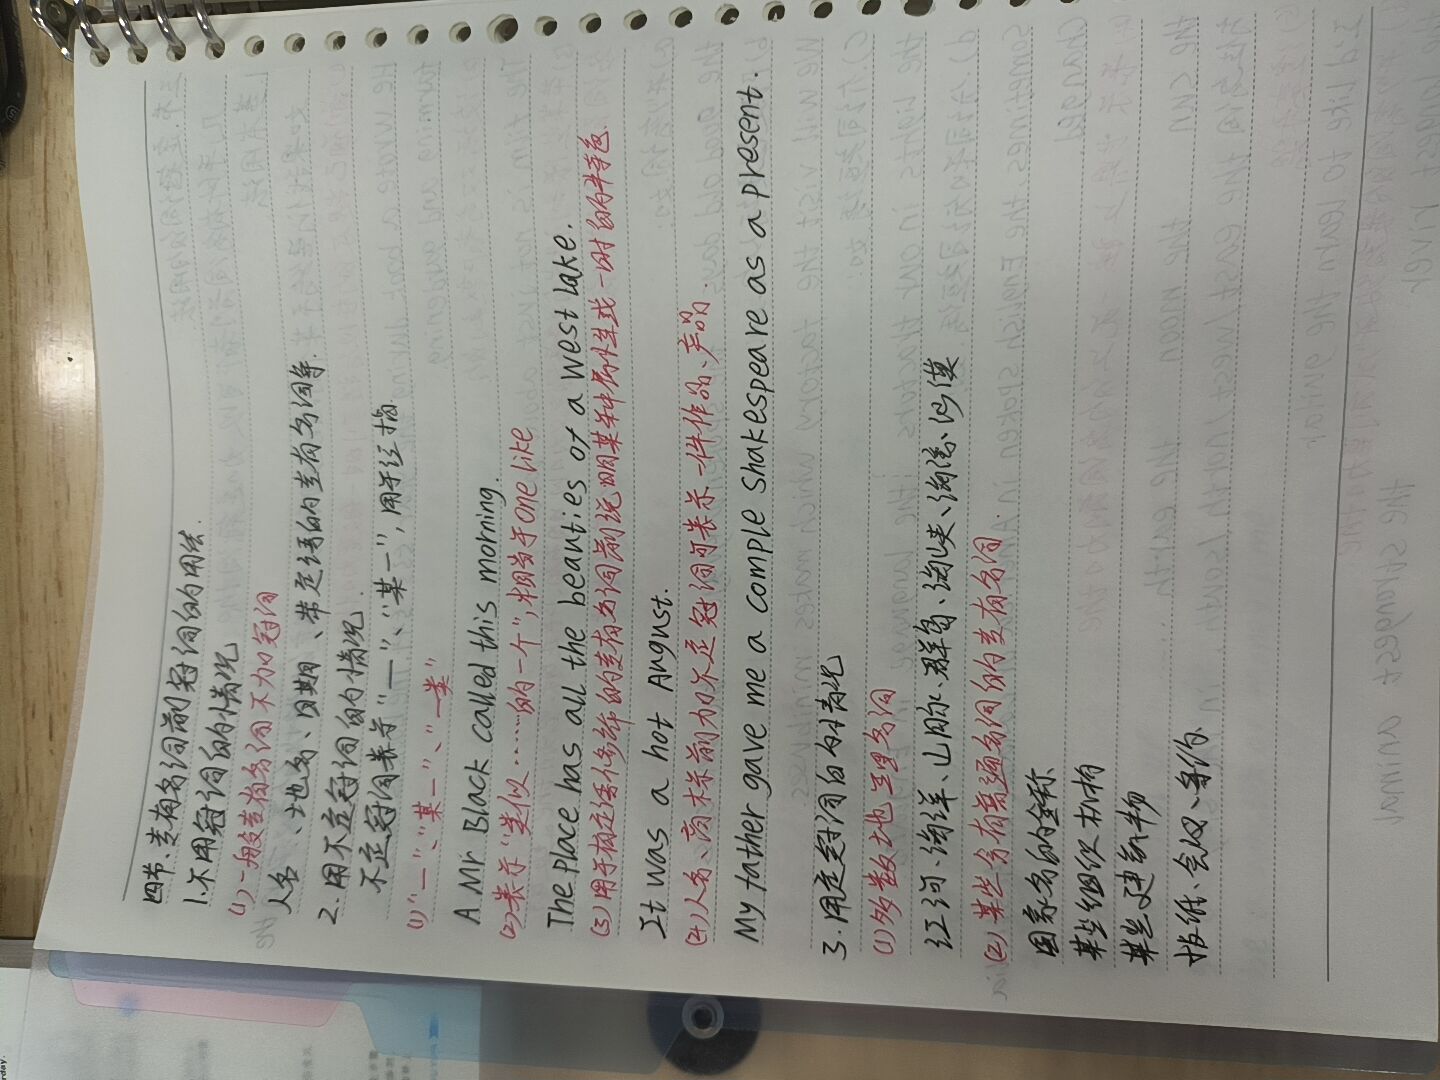 四节、专有名词前冠词的用法.
1.不用冠词的情况
(1)一般专有名词不加冠词
人名、地名、日期、带定语的专有名词等.
2.用不定冠词的情况.
不定冠词表示“一”、“某一”,用于泛指.
(1)“一”、“某一”、“一类”
A Mr Black called this morning.
(2)表示“类似……的一个”,相当于one like
The place has all the beauties of a west Lake.
(3)用于有定语修饰的专有名词前说明某种属性或一时的特色.
It was a hot August.
(4)人名、商标前加不定冠词可表示一件作品、产品.
My father gave me a comple Shakespeare as a present.
3.用定冠词的情况
(1)多数地理名词
江河、海洋、山脉、群岛、海峡、海湾、沙漠
(2)某些含有普通名词的专有名词.
国家名的全称
某些组织机构
某些建筑物
报纸、会议、条约.